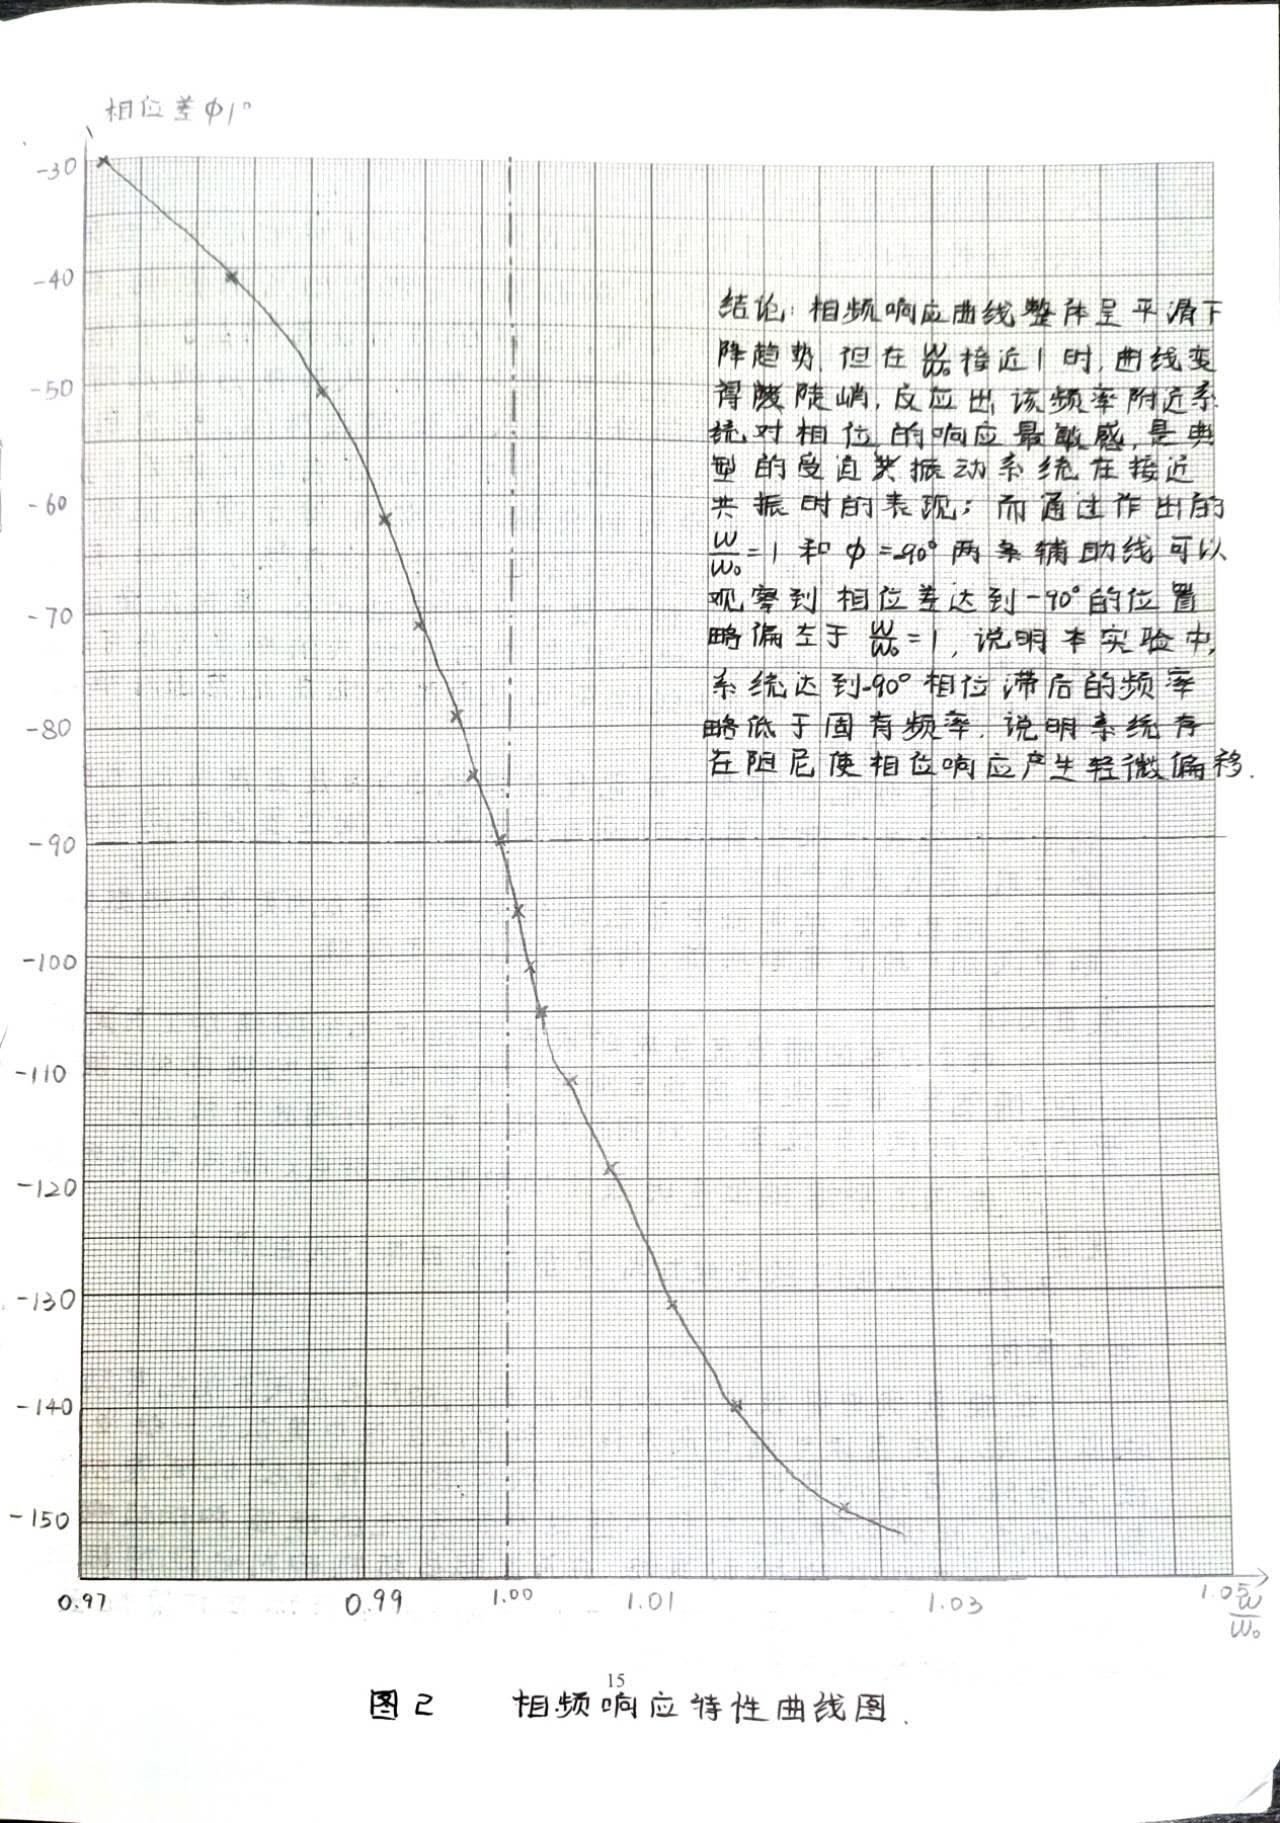 相位差φ/°
-30
-40
-50
-60
-70
-80
-90
-100
-110
-120
-130
-140
-150
结论:相频响应曲线整体呈平滑下
降趋势,但在ω/ω₀接近1时,曲线变
得陡峭,反应出该频率附近系
统对相位的响应最敏感,是典
型的受迫振动系统在接近
共振时的表现;而通过作出的
ω/ω₀=1和φ=-90°两条辅助线可以
观察到相位差达到-90°的位置
略偏左于ω/ω₀=1,说明本实验中,
系统达到-90°相位滞后的频率
略低于固有频率,说明系统存
在阻尼使相位响应产生轻微偏移.
0.97 0.99 1.00 1.01 1.03 1.05 ω/ω₀
15
图2 相频响应特性曲线图.